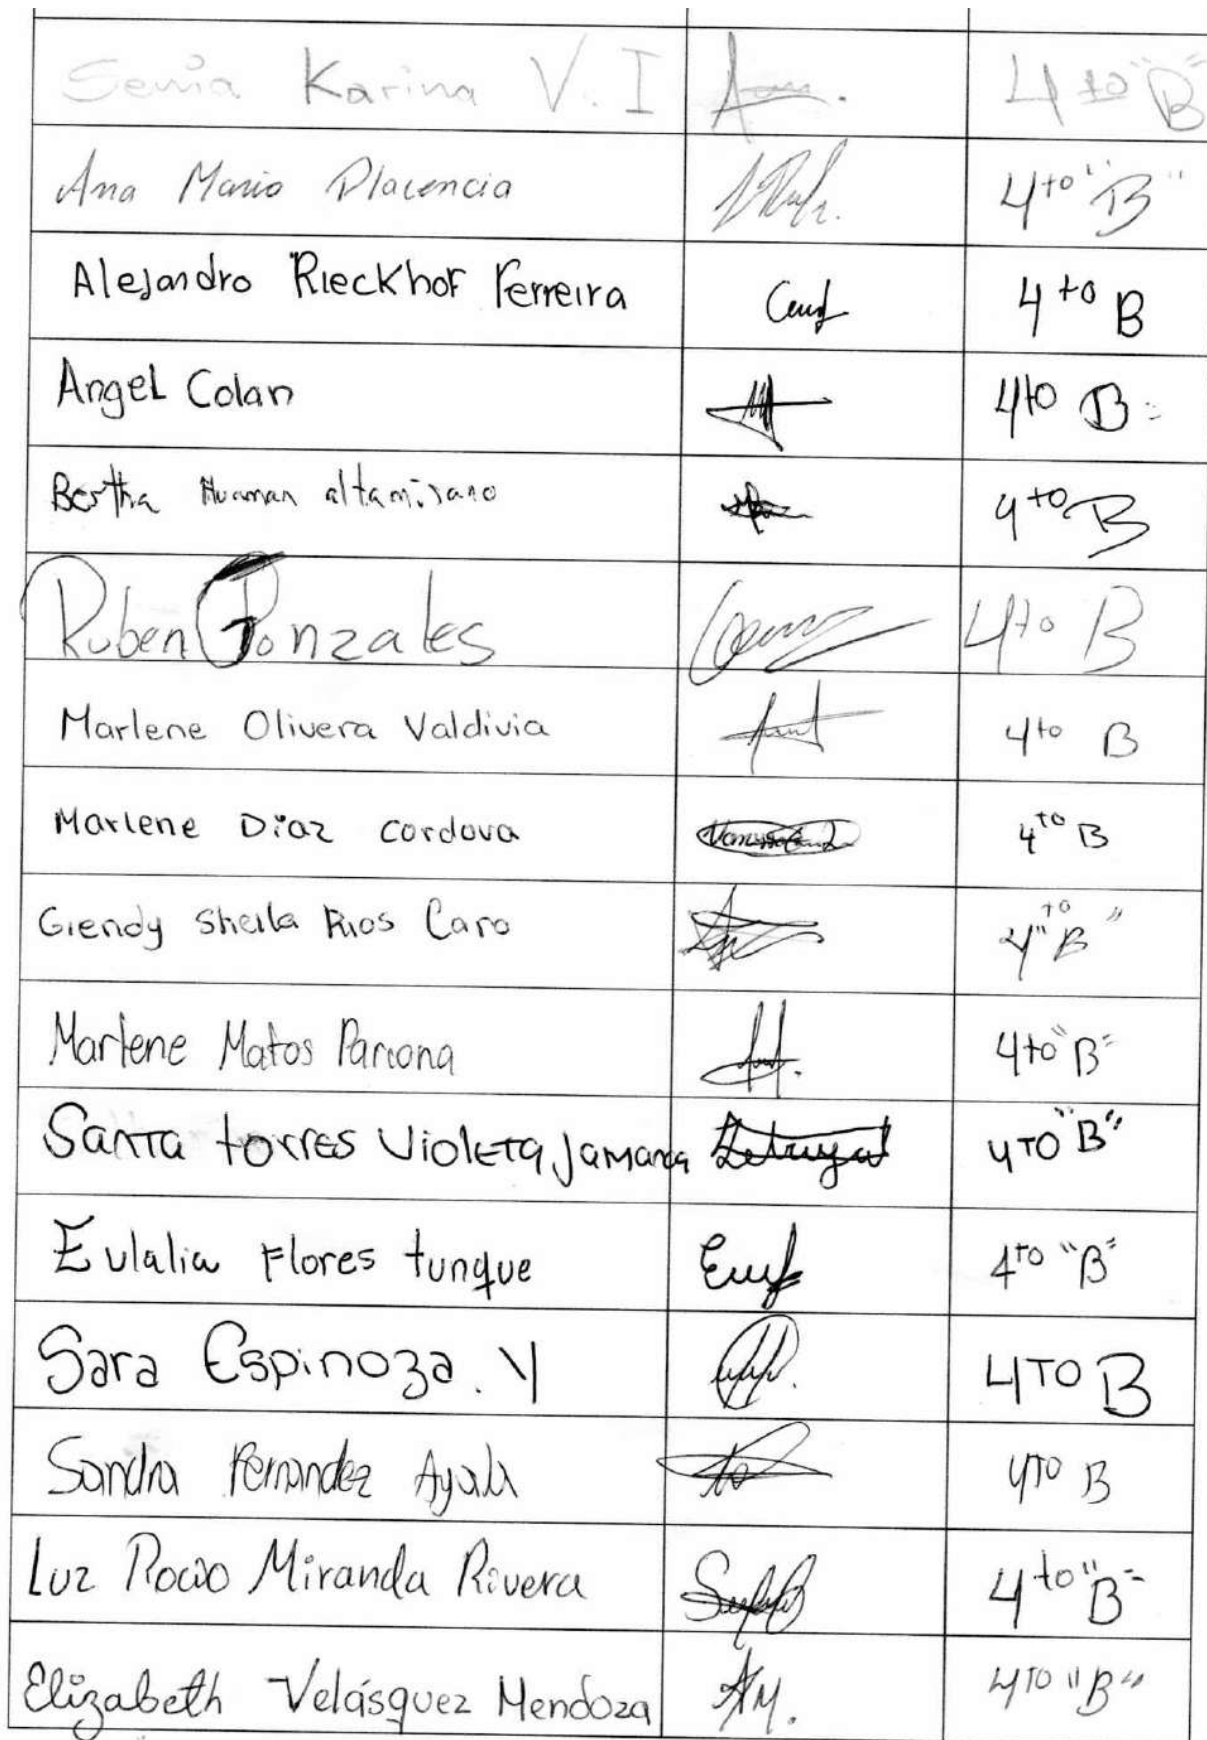 Senia Karina V. I 4to "B"
Ana Maria Placencia 4to "B"
Alejandro Rieckhof Ferreira 4to B
Angel Colan 4to B
Bertha Huaman altamirano 4to B
Ruben Gonzales 4to B
Marlene Olivera Valdivia 4to B
Marlene Diaz cordova 4to B
Giendy Sheila Rios Caro 4to "B"
Marlene Matos Pariona 4to "B"
Santa torres Violeta Jamara 4TO "B"
Eulalia Flores tunque 4to "B"
Sara Espinoza. Y 4TO B
Sandra Fernandez Ayala 4TO B
Luz Rocio Miranda Rivera 4to "B"
Elizabeth Velásquez Mendoza AM. 4TO "B"